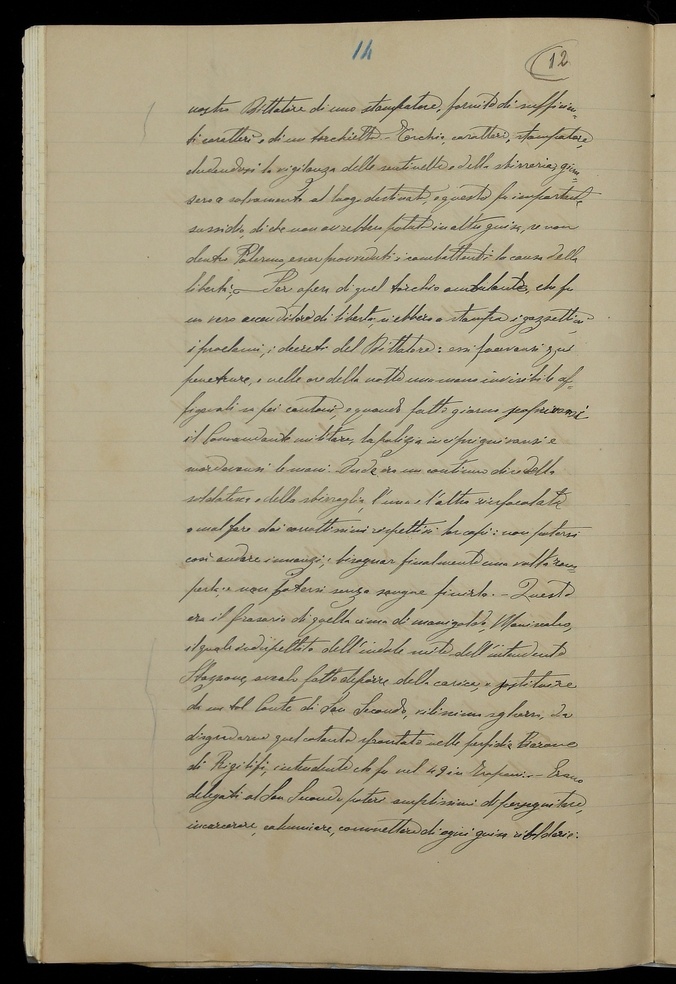 14
12
nostro Dittatore di uno stampatore, fornito di sufficien-
ti caratteri e di un torchietto - Torchio, caratteri, stampatore
eludendosi la vigilanza delle sentinelle e della sbirreria, giun-
sero a salvamento al luogo destinato, e questo fu importante
sussidio, di che non avrebbero potuto in altra guisa, se non
dentro Palermo, esser provveduti i combattenti la causa della
libertà. Per opera di quel torchio ambulante, che fu
un vero banditore di libertà, si ebbero a stampa i gazzettini,
i proclami, i decreti del Dittatore: essi facevansi qui
penetrare, e nelle ore della notte una mano invisibile af-
figevali su pei cantoni, e quando fatto giorno
il Comandante militare, la polizia inviperivansi e
mordevansi le mani. Onde era un continuo dire della
soldatesca e della sbirraglia, l'una e l'altra rinfocolate
a mal fare dai corrottissimi rispettivi lor capi: non potersi
così andare innanzi, bisognar finalmente una volta rom-
perla, e non potersi senza sangue finirla. - Questo
era il frasario di quella cima di manigoldo, Maniscalco,
il quale indispettito dell'indole mite dell'intendente
avealo fatto deporre dalla carica, e sostituire
da un tal Conte di San Secondo, vilissimo sgherro, da
disgradarne quel cotanto sfrontato nelle perfidie Barone
di Rigilifi, intendente che fu nel 49 in Trapani. - Erano
delegati al San Secondo poteri amplissimi di perseguitare,
incarcerare, calunniare, commettere di ogni guisa ribalderie: